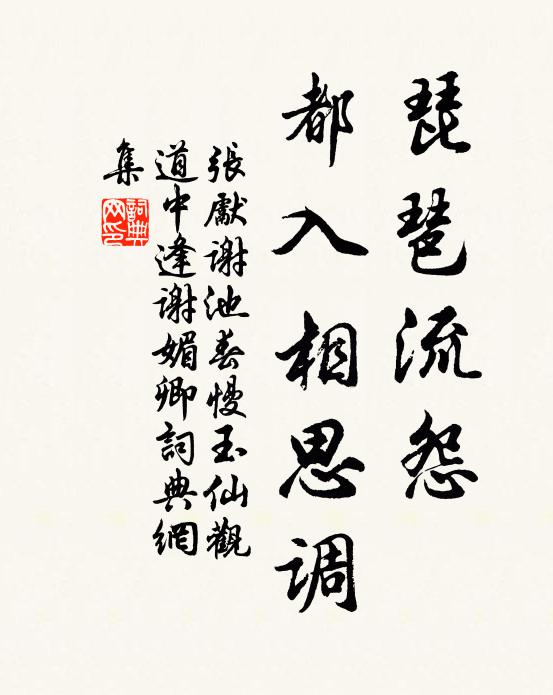 琵琶流怨
都入相思调
張獻謝池春慢玉仙觀
道中逢謝媚卿詞典網
集
詞典
网印